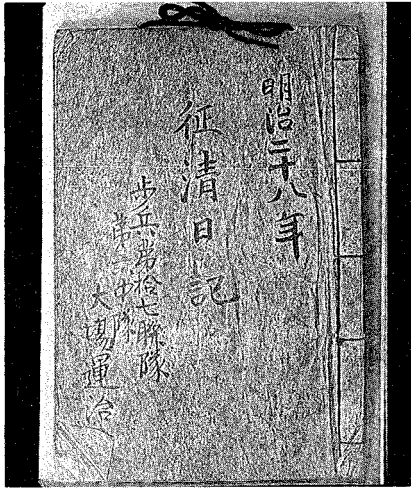 明治二十八年
征清日記
歩兵第拾七聯隊
第一中隊
大場運治